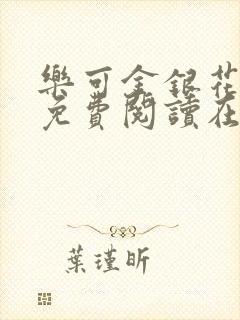 樂可金銀花
免費閱讀在
葉瑾昕